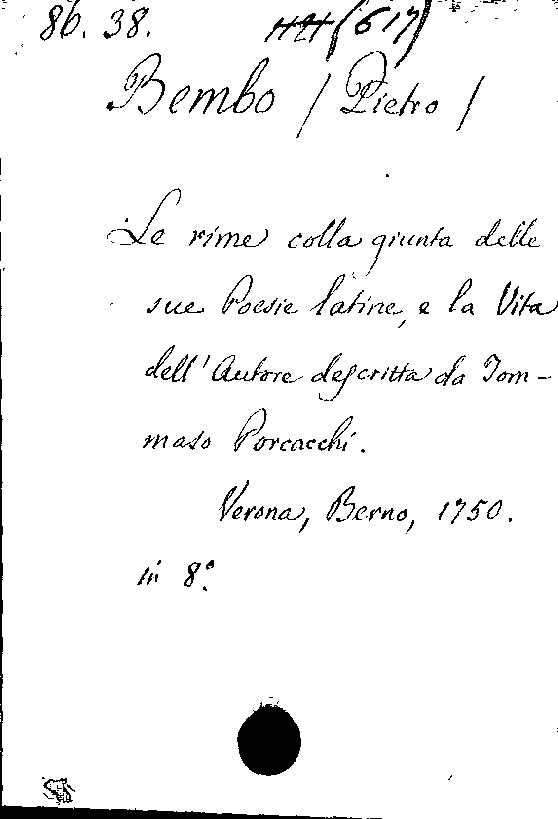 86. 38. (617)
Bembo / Pietro /
Le rime colla giunta delle
sue Poesie latine, e la Vita
dell' Autore descritta da Tom-
maso Porcacchi.
Verona, Berno, 1750.
in 8.°